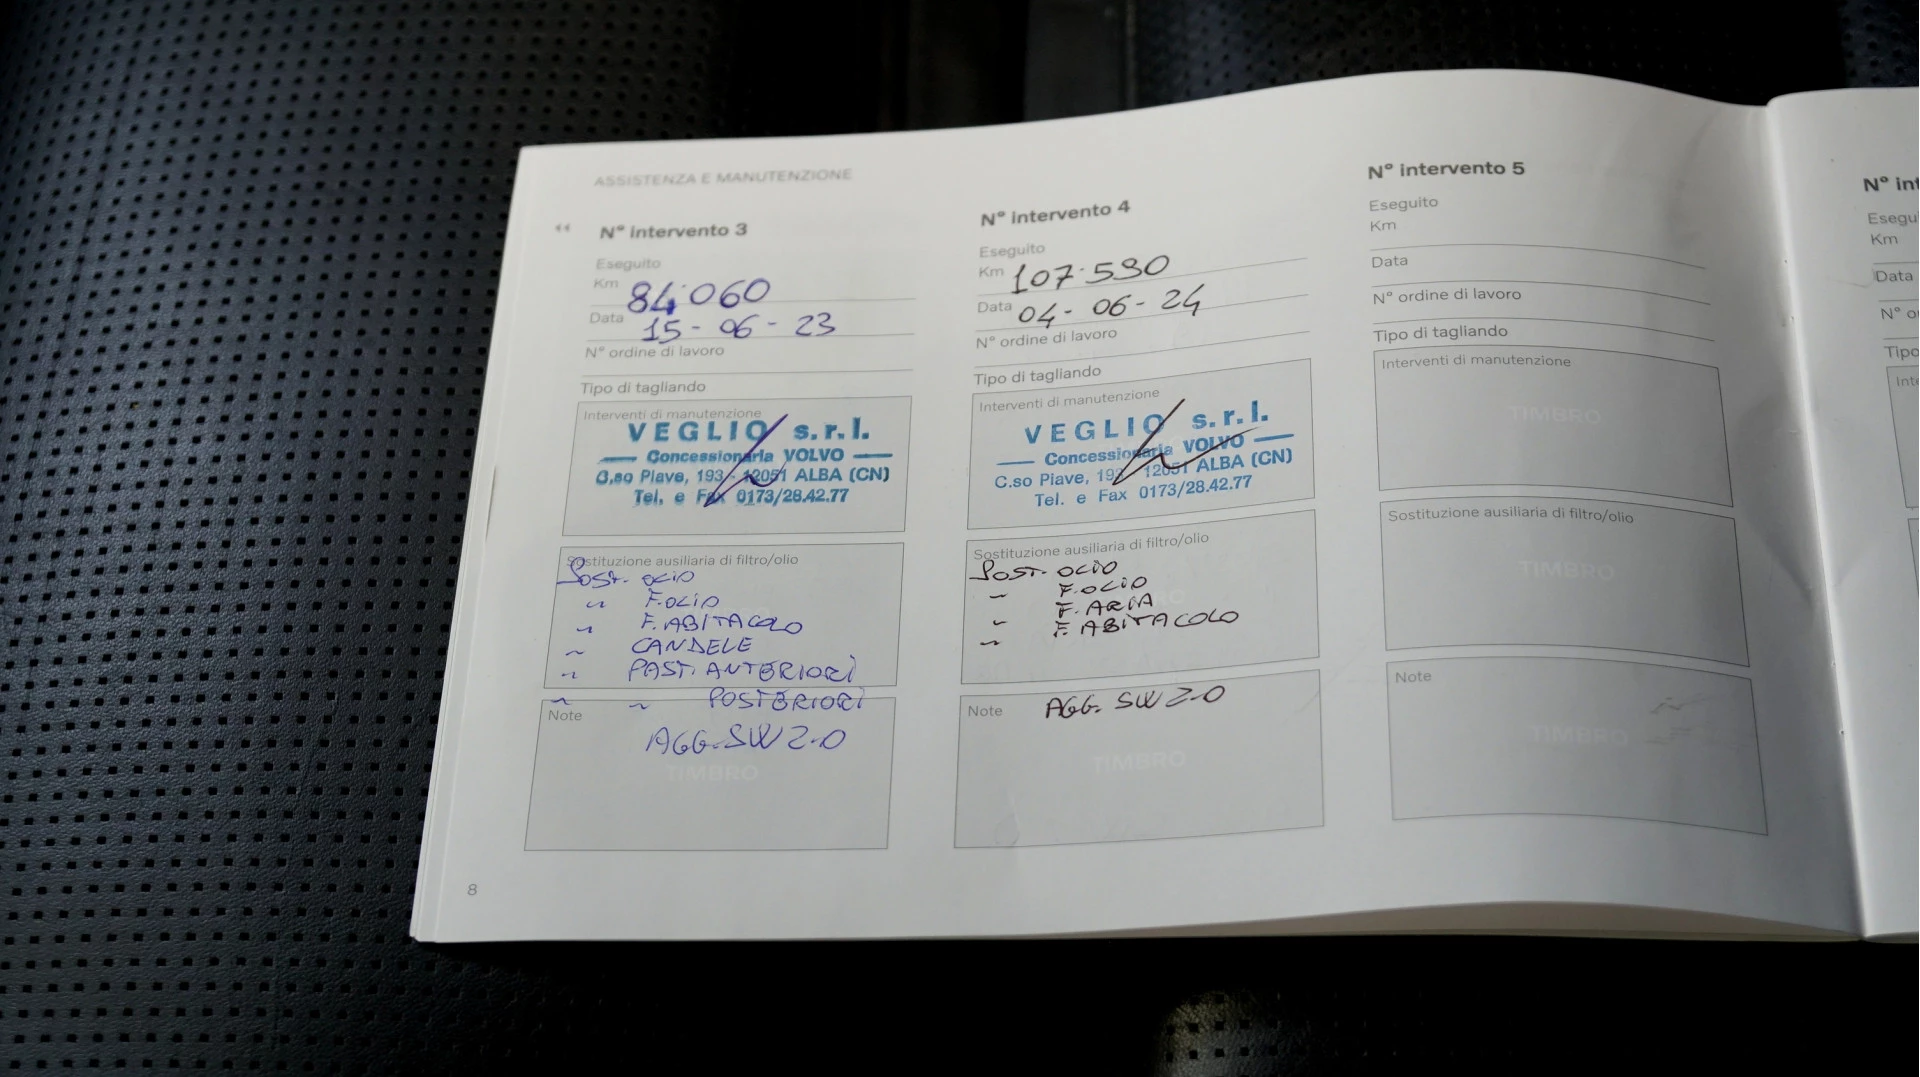 ASSISTENZA E MANUTENZIONE
N° intervento 3
Eseguito
Km 84.060
Data 15-06-23
N° ordine di lavoro
Tipo di tagliando
Interventi di manutenzione
VEGLIO s.r.l.
Concessionaria VOLVO
C.so Piave, 193 - 12051 ALBA (CN)
Tel. e Fax 0173/28.42.77
Sostituzione ausiliaria di filtro/olio
SOST. OLIO
~ F.OLIO
~ F. ABITACOLO
~ CANDELE
~ PAST. ANTERIORI
~ ~ POSTERIORI
Note
AGG. SW 2.0
TIMBRO
N° intervento 4
Eseguito
Km 107.590
Data 04-06-24
N° ordine di lavoro
Tipo di tagliando
Interventi di manutenzione
VEGLIO s.r.l.
Concessionaria VOLVO
C.so Piave, 193 - 12051 ALBA (CN)
Tel. e Fax 0173/28.42.77
Sostituzione ausiliaria di filtro/olio
SOST. OLIO
~ F.OLIO
~ F. ARIA
~ F. ABITACOLO
Note AGG. SW 2.0
TIMBRO
N° intervento 5
Eseguito
Km
Data
N° ordine di lavoro
Tipo di tagliando
Interventi di manutenzione
TIMBRO
Sostituzione ausiliaria di filtro/olio
TIMBRO
Note
TIMBRO
8
N° int
Esegu
Km
Data
N° o
Tipo
Inte